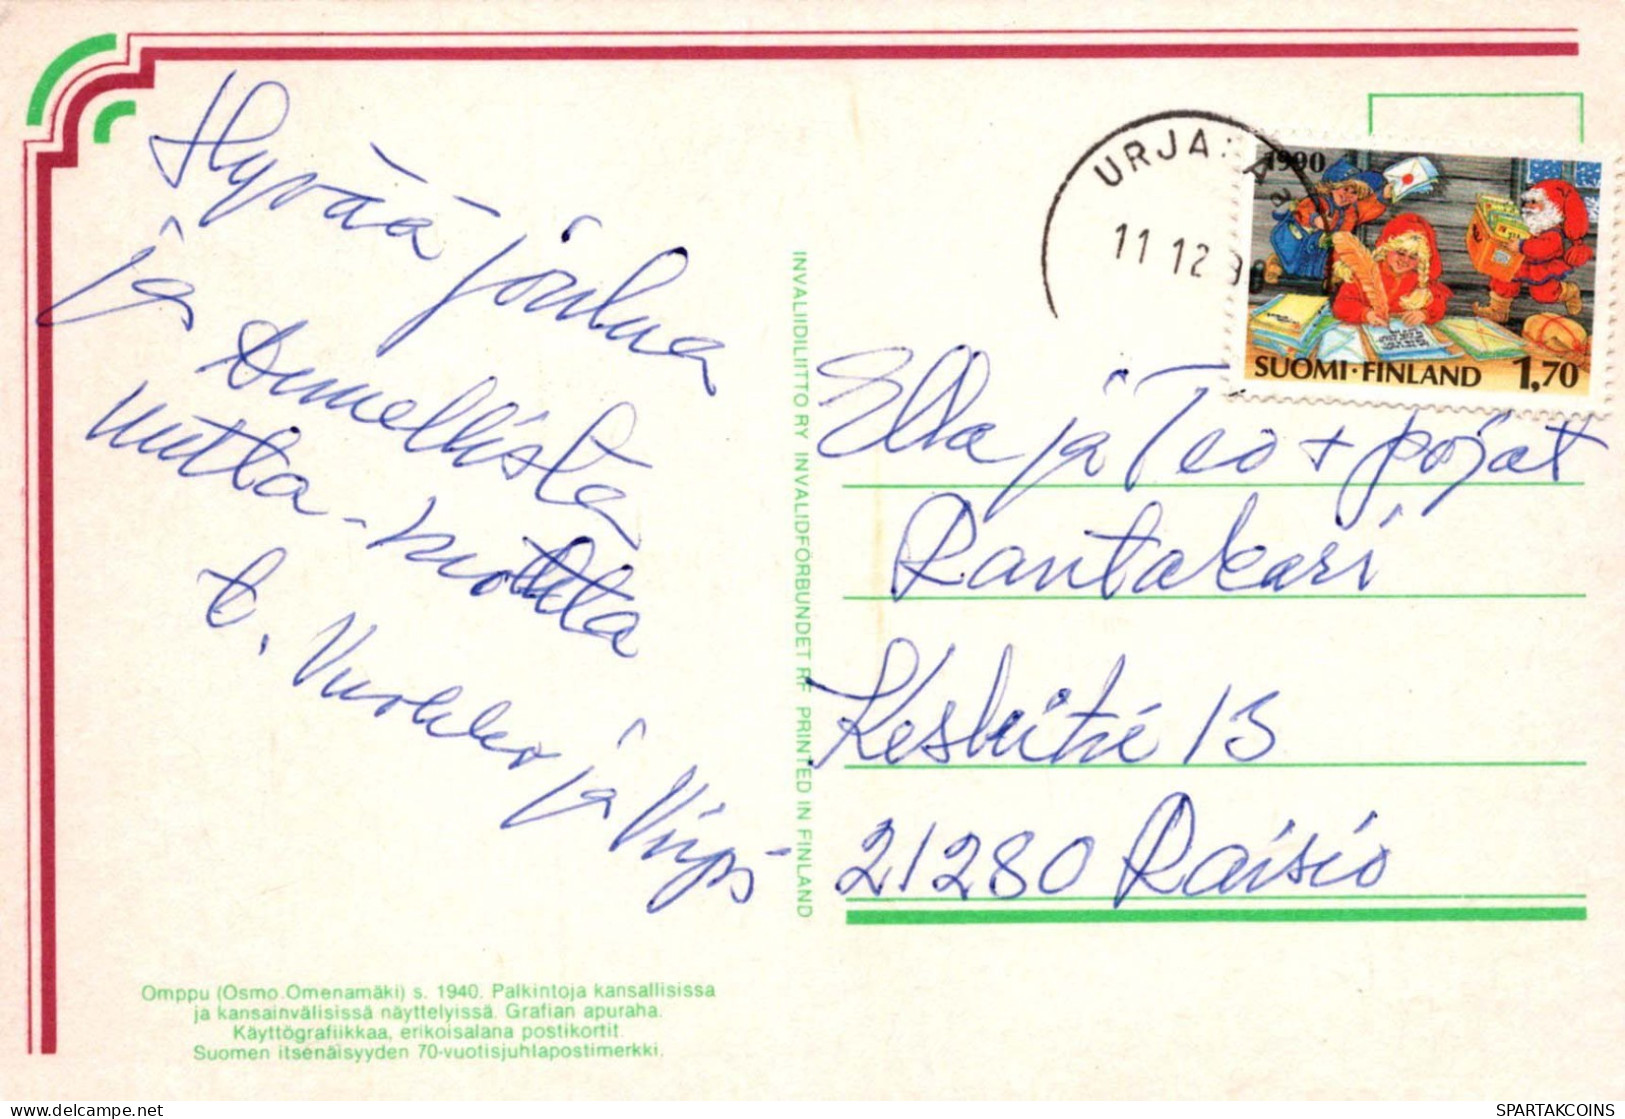 Hyvää joulua
ja Onnellista
uutta-vuotta
t. Vuokko ja
INVALIIDILIITTO RY INVALIDFÖRBUNDET RF PRINTED IN FINLAND
URJA
11 12
1990
SUOMI·FINLAND 1,70
Ella ja Teo + pojat
Rantakari
Keskitie 13
21280 Raisio
Omppu (Osmo Omenamäki) s. 1940. Palkintoja kansallisissa
ja kansainvälisissä näyttelyissä. Grafian apuraha.
Käyttögrafiikkaa, erikoisalana postikortit.
Suomen itsenäisyyden 70-vuotisjuhlapostimerkki.
delcampe.net
SPARTAKCOINS